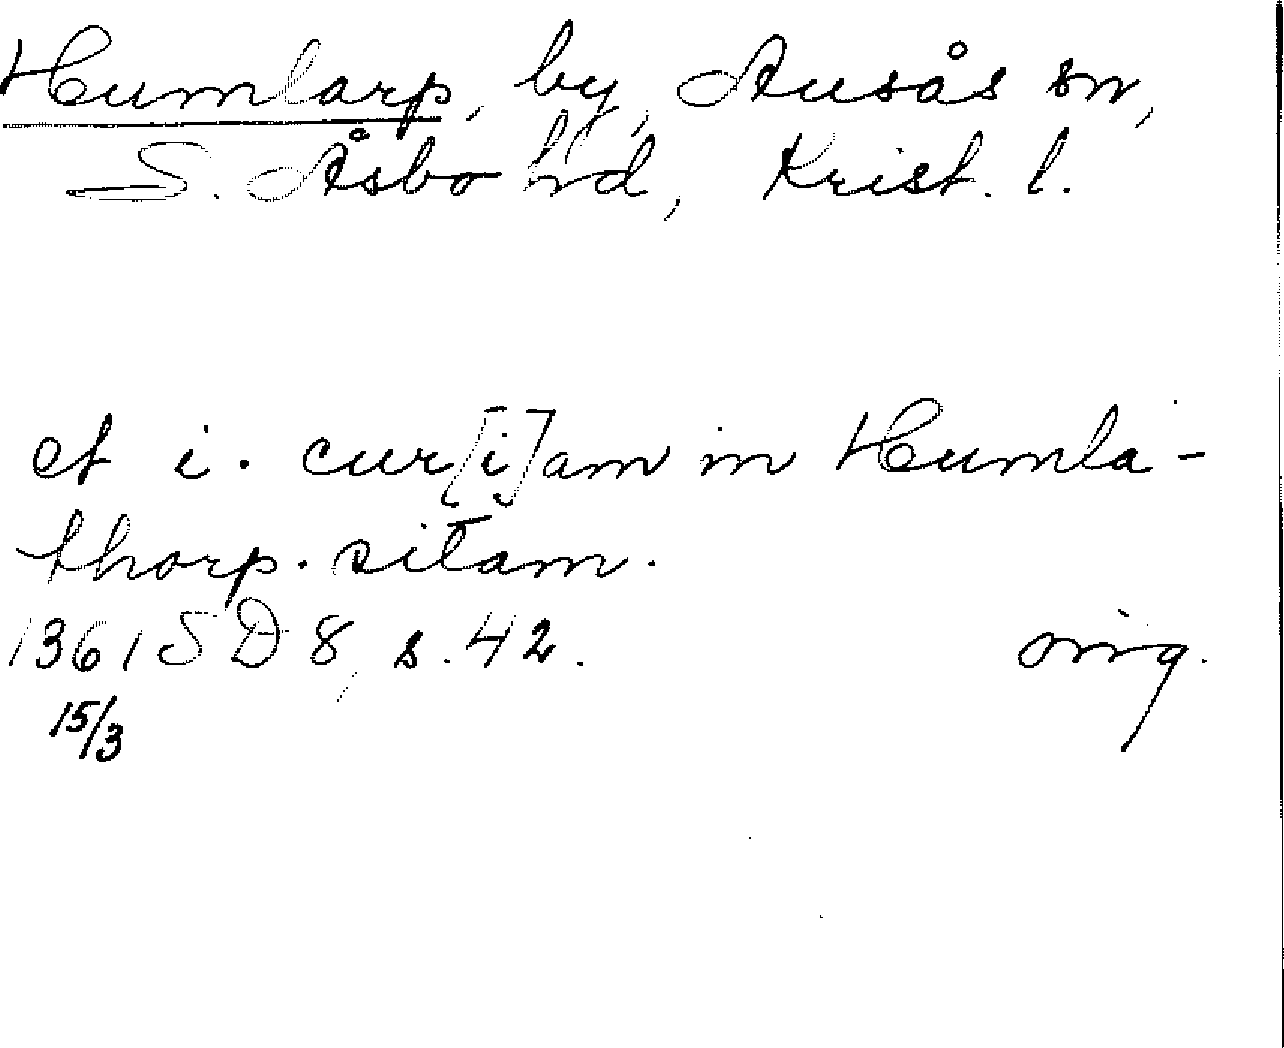 Humlarp, by, Ausås sn,
S. Åsbo hd, Krist. l.
et i. cur[i]am in Humla-
thorp. sitam.
1361 SD 8, s. 42. orig.
15/3